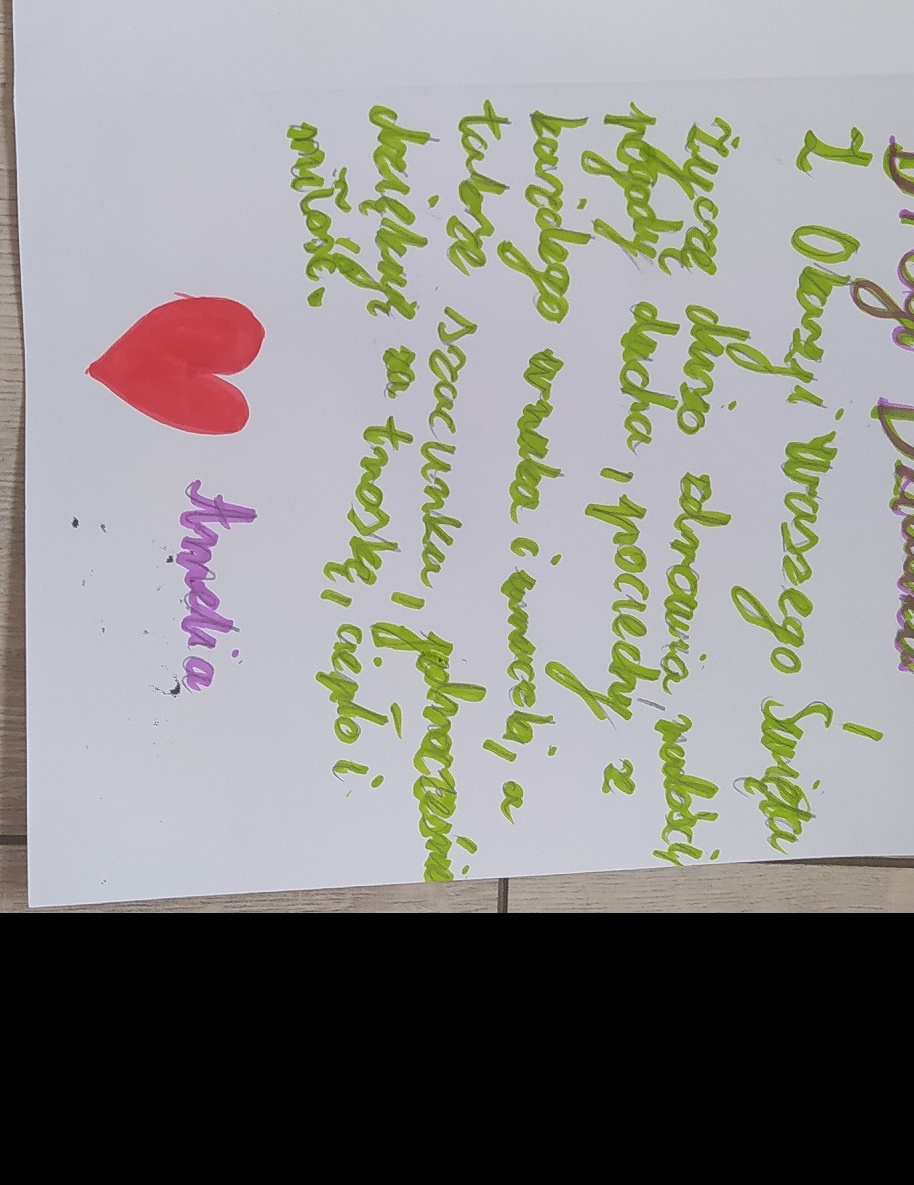 Droga Babciu
Z Okazji Waszego Święta
życzę dużo zdrowia, radości,
pogody ducha, pociechy z
każdego wnuka i wnuczki, a
także szacunku, jednocześnie
dziękuję za troskę, ciepło i
miłość.
Amelia